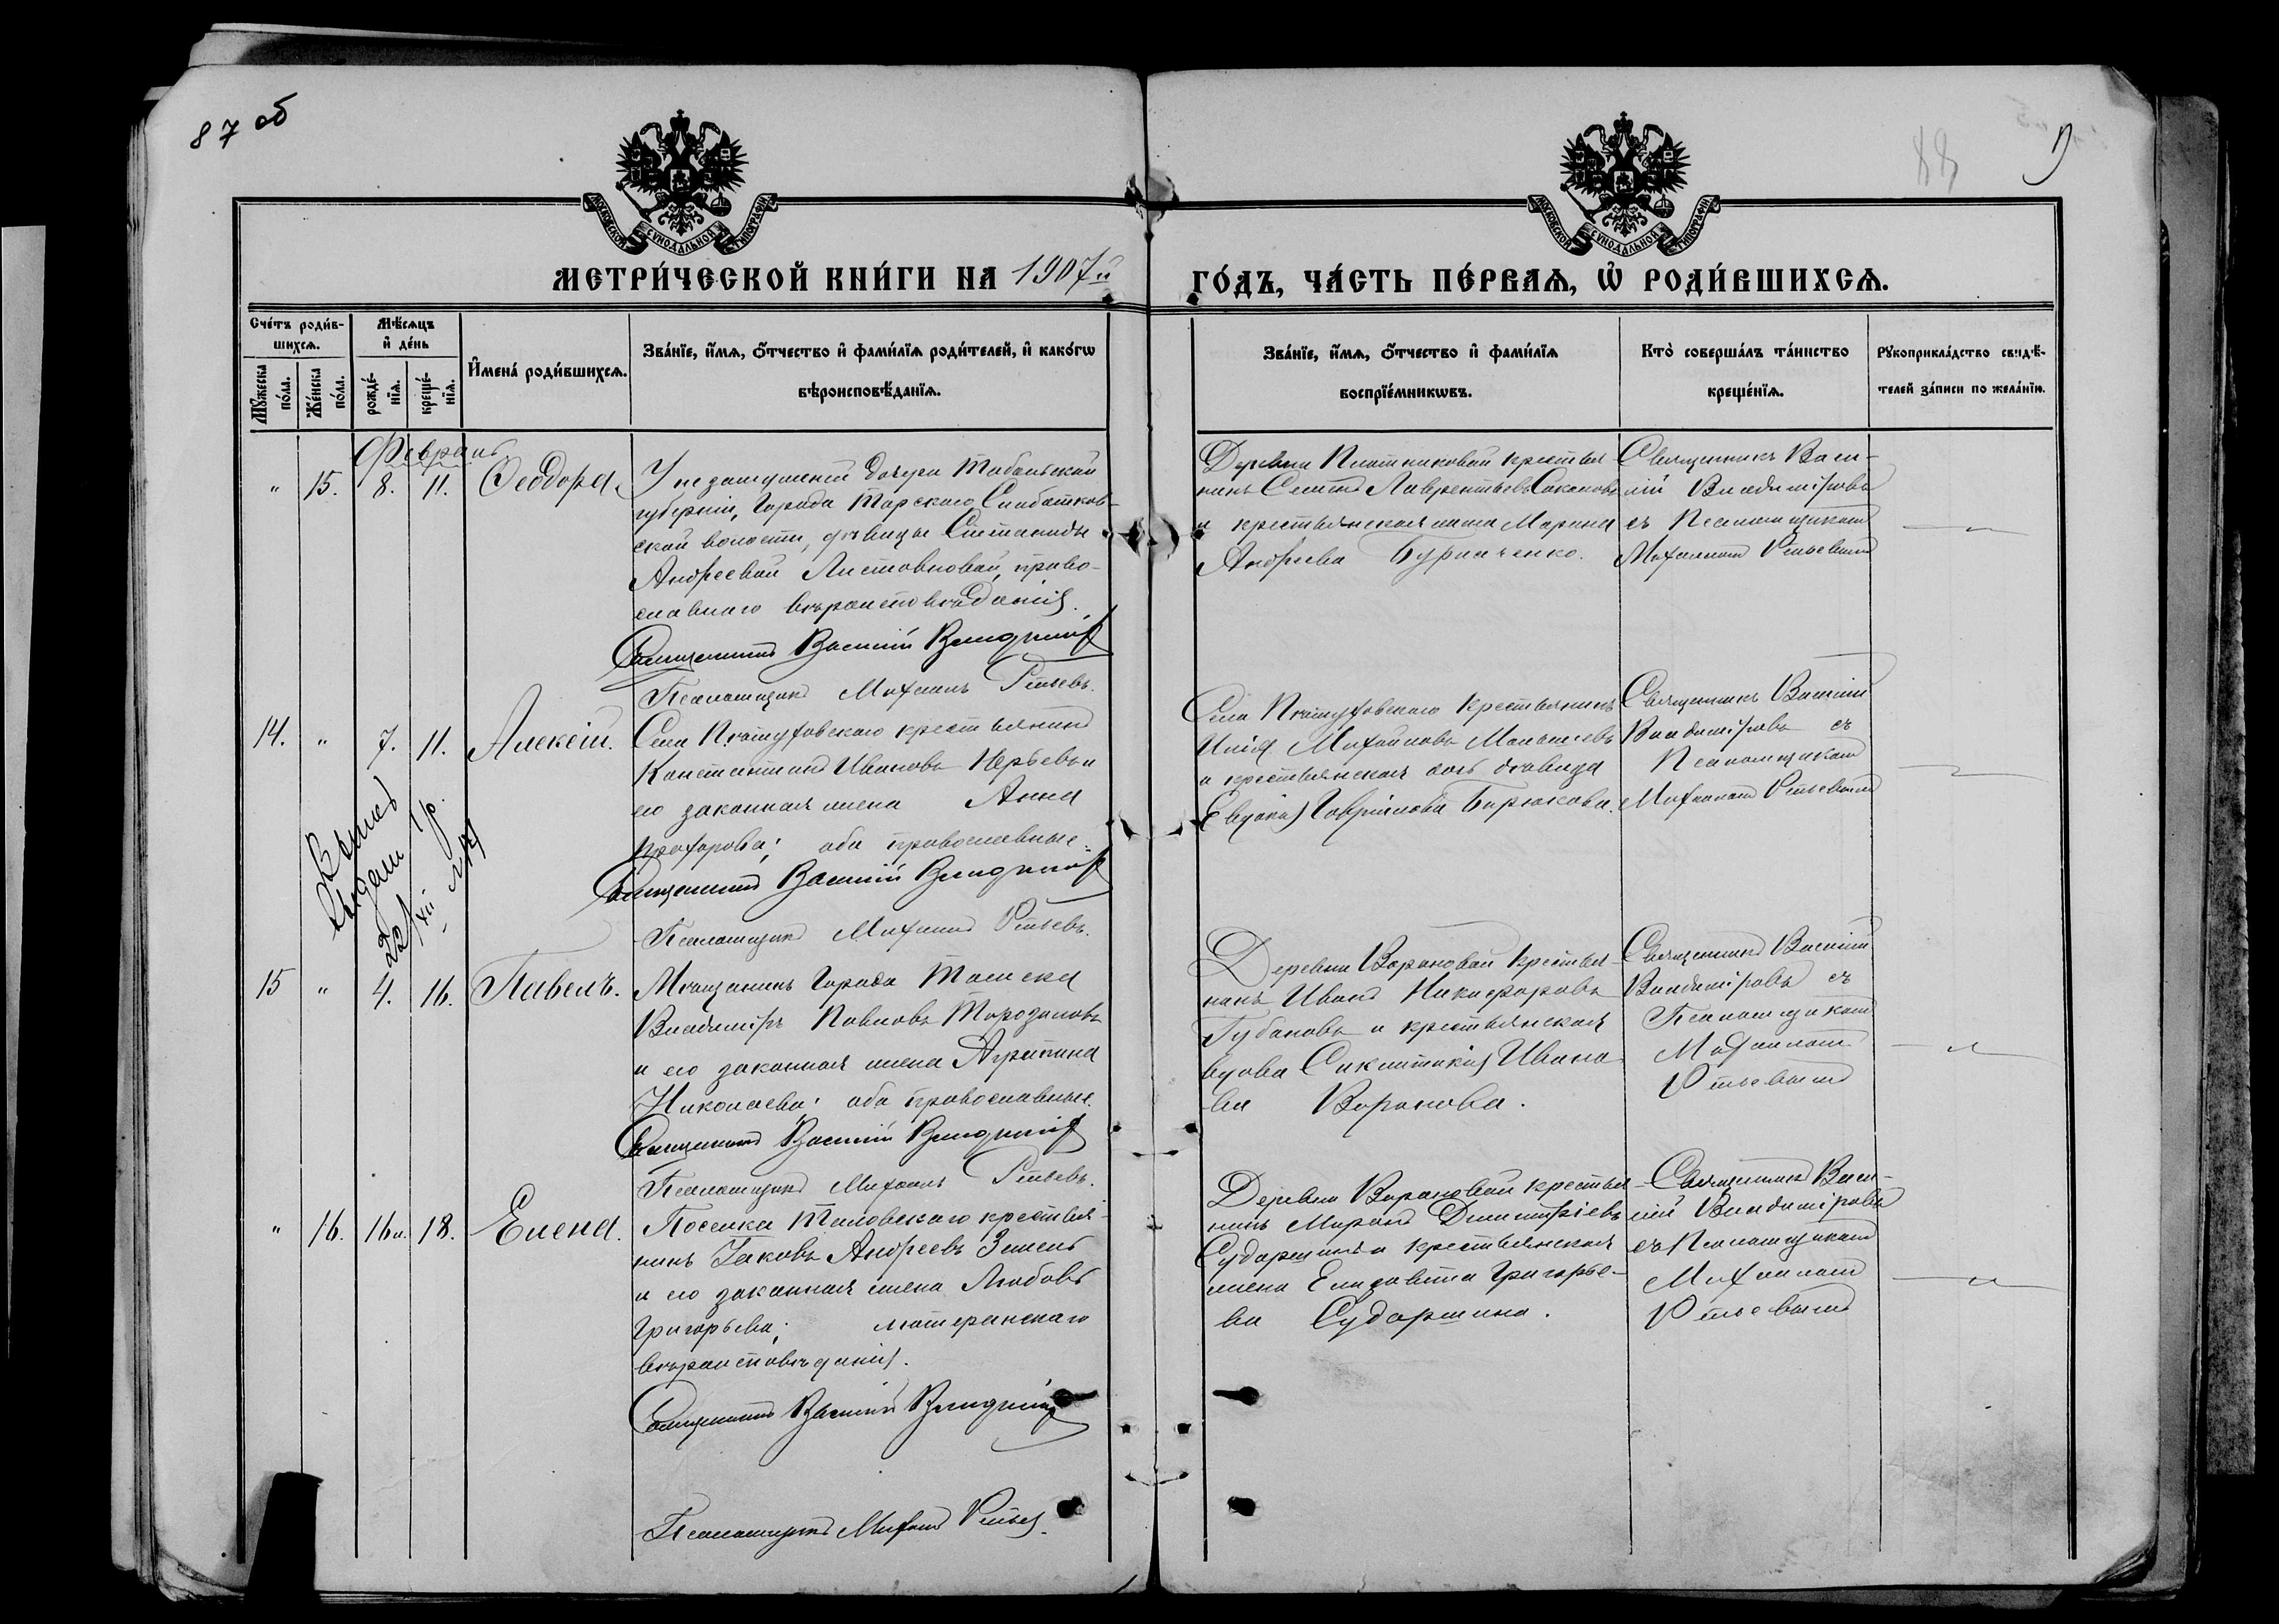 87 об
88
МОСКОВСКОЙ СУНОДАЛЬНОЙ ТИПОГРАФІИ
МОСКОВСКОЙ СУНОДАЛЬНОЙ ТИПОГРАФІИ
МЕТРИ́ЧЕСКОЙ КНИ́ГИ НА 1907й ГО́ДЪ, ЧА́СТЬ ПЕ́РВАѦ, Ѿ РОДИ́ВШИХСѦ.
Сче́тъ роди́в-
шихсѧ.
Мѣ́сѧцъ
и҆ де́нь
Мꙋ́жеска
по́ла.
Же́нска
по́ла.
рожде́-
нїѧ.
креще́-
нїѧ.
И҆мена̀ роди́вшихсѧ.
Зва́нїе, и҆́мѧ, ѻ҆́тчество и҆ фами́лїѧ роди́телей, и҆ како́гѡ
вѣроисповѣ́данїѧ.
Зва́нїе, и҆́мѧ, ѻ҆́тчество и҆ фами́лїѧ
воспрїе́мникѡвъ.
Кто̀ соверша́лъ та́инство
креще́нїѧ.
Рꙋкоприкла́дство свидѣ́-
телей за́писи по жела́нїю.
Февраль
" 15. 8. 11. Ѳеодора.
У незамужней дочери Тобольской
губерніи, города Тарскаго
ской волости, дѣвицы Степаниды
Андреевой Листовковой, право-
славнаго вѣроисповѣданія.
Священникъ Василій Владиміровъ
Псаломщикъ Михаилъ
Деревни Плотниковой крестья-
нинъ Семенъ Лаврентьевъ
и крестьянская жена Марина
Андреева Бурлаченко.
Священникъ Васи-
лій Владиміровъ
съ Псаломщикомъ
Михаиломъ
14. " 7. 11. Алексій.
Села крестьянинъ
Константинъ Ивановъ Юрьевъ и
его законная жена Анна
Прохорова; оба православные.
Священникъ Василій Владиміровъ
Псаломщикъ Михаилъ
Села крестьянинъ
Илія Михайловъ
и крестьянская дочь дѣвица
Евдокія Гавріилова Бирюкова.
Священникъ Василій
Владиміровъ съ
Псаломщикомъ
Михаиломъ
Выпись
выдана
22/XII
15 " 4. 16. Павелъ.
Мѣщанинъ города Томска
Владиміръ Павловъ
и его законная жена Агрипина
Николаева; оба православные.
Священникъ Василій Владиміровъ
Псаломщикъ Михаилъ
Деревни Вороновой крестья-
нинъ Иванъ Никифоровъ
Губановъ и крестьянская
вдова Ивано-
ва Воронова.
Священникъ Василій
Владиміровъ съ
Псаломщикомъ
Михаиломъ
" 16. 16. 18. Елена.
Поселка Таловскаго крестья-
нинъ Іаковъ Андреевъ
и его законная жена Любовь
Григорьева; лютеранскаго
вѣроисповѣданія.
Священникъ Василій Владиміровъ
Псаломщикъ Михаилъ
Деревни Вороновой крестья-
нинъ Миронъ Димитріевъ
и крестьянская
жена Елизавета Григорье-
ва
Священникъ Васи-
лій Владиміровъ
съ Псаломщикомъ
Михаиломъ